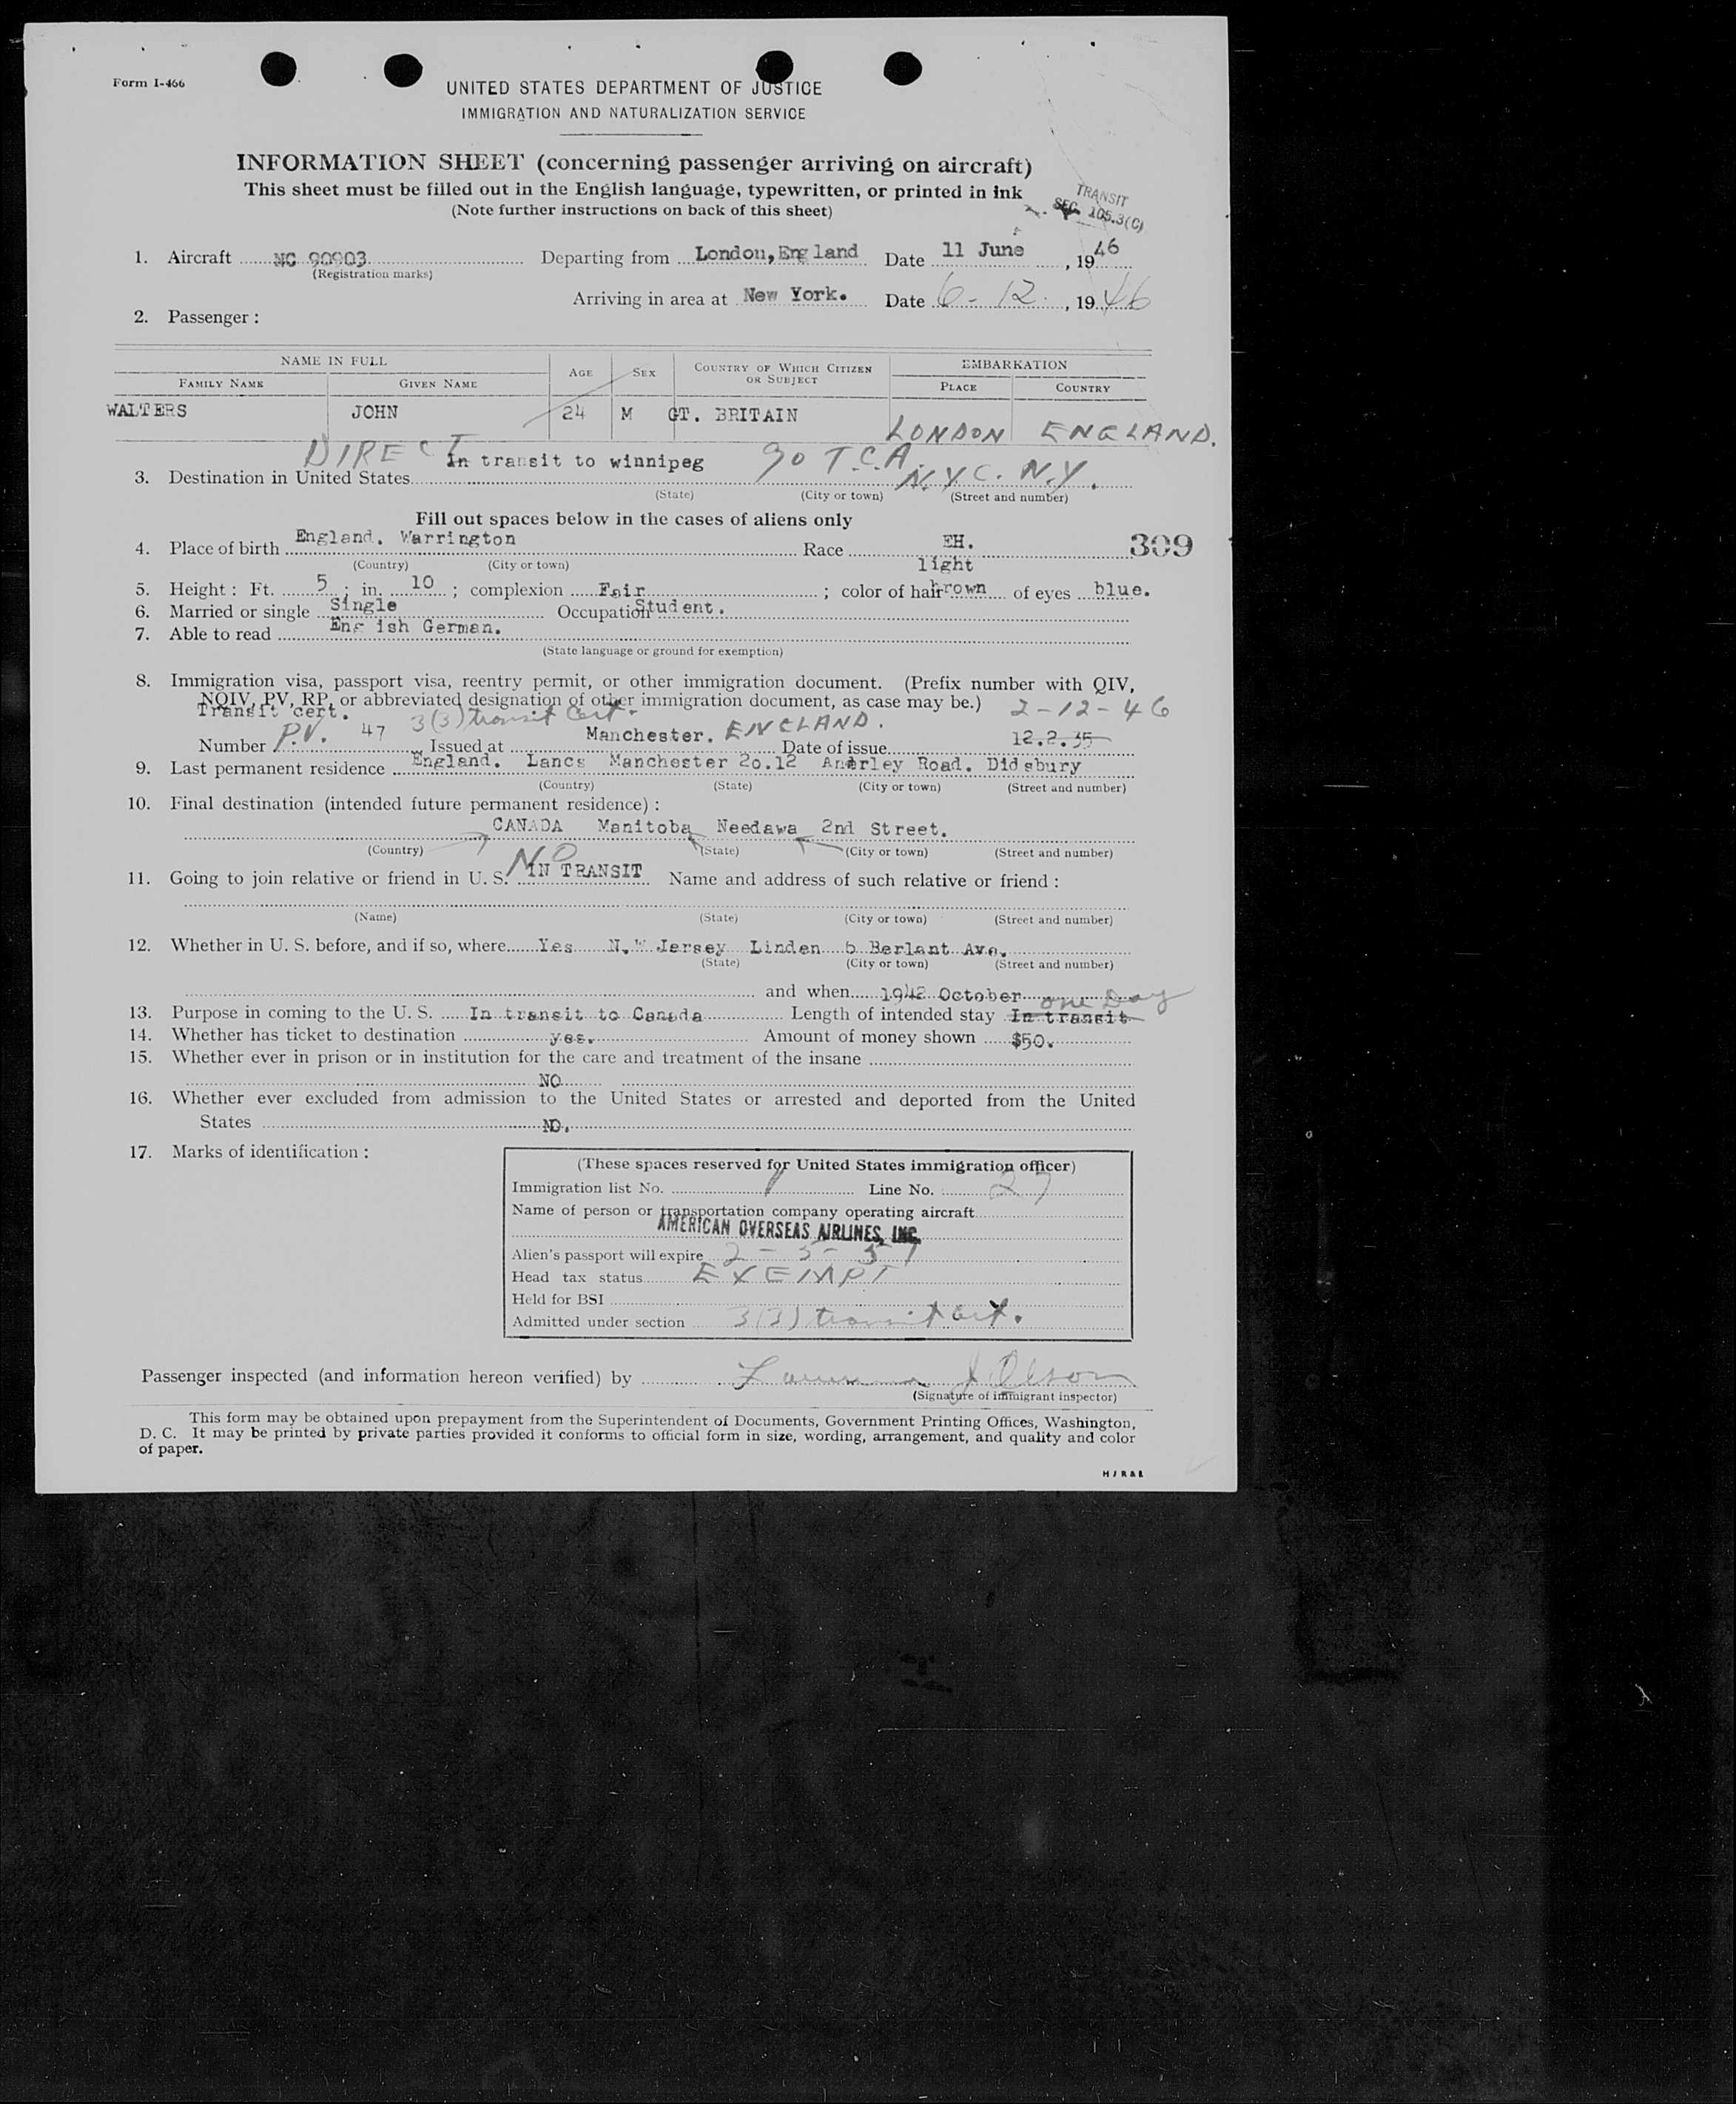 Form I-466
UNITED STATES DEPARTMENT OF JUSTICE
IMMIGRATION AND NATURALIZATION SERVICE
INFORMATION SHEET (concerning passenger arriving on aircraft)
This sheet must be filled out in the English language, typewritten, or printed in ink
(Note further instructions on back of this sheet)
TRANSIT
SEC. 105.3(C)
1. Aircraft NC 90903 Departing from London, England Date 11 June, 1946
(Registration marks)
Arriving in area at New York. Date 6-12, 1946
2. Passenger:
NAME IN FULL AGE SEX COUNTRY OF WHICH CITIZEN OR SUBJECT EMBARKATION
FAMILY NAME GIVEN NAME PLACE COUNTRY
WALTERS JOHN 24 M GT. BRITAIN LONDON ENGLAND.
DIRECT In transit to winnipeg 90 T.C.A. N.Y.C. N.Y.
3. Destination in United States
(State) (City or town) (Street and number)
Fill out spaces below in the cases of aliens only
4. Place of birth England. Warrington Race EH. 309
(Country) (City or town) light
5. Height: Ft. 5; in. 10; complexion Fair; color of hair brown of eyes blue.
6. Married or single Single Occupation Student.
7. Able to read Eng ish German.
(State language or ground for exemption)
8. Immigration visa, passport visa, reentry permit, or other immigration document. (Prefix number with QIV,
NQIV, PV, RP, or abbreviated designation of other immigration document, as case may be.) 2-12-46
Transit cert. 3(3) transit Cert.
Number P.V. 47 Issued at Manchester. ENGLAND. Date of issue 12.2.35
9. Last permanent residence England. Lancs Manchester 20.12 Anerley Road. Didsbury
(Country) (State) (City or town) (Street and number)
10. Final destination (intended future permanent residence):
CANADA Manitoba Needawa 2nd Street.
(Country) (State) (City or town) (Street and number)
11. Going to join relative or friend in U. S. NO IN TRANSIT Name and address of such relative or friend:
(Name) (State) (City or town) (Street and number)
12. Whether in U. S. before, and if so, where Yes N.W Jersey Linden 5 Berlant Ave.
(State) (City or town) (Street and number)
and when 1942 October one Day
13. Purpose in coming to the U. S. In transit to Canada Length of intended stay In transit
14. Whether has ticket to destination yes. Amount of money shown $50.
15. Whether ever in prison or in institution for the care and treatment of the insane
NO
16. Whether ever excluded from admission to the United States or arrested and deported from the United
States NO.
17. Marks of identification:
(These spaces reserved for United States immigration officer)
Immigration list No. 1 Line No. 27
Name of person or transportation company operating aircraft
AMERICAN OVERSEAS AIRLINES, INC.
Alien's passport will expire 2-5-51
Head tax status EXEMPT
Held for BSI
Admitted under section 3(3) transit cert.
Passenger inspected (and information hereon verified) by J Olson
(Signature of immigrant inspector)
This form may be obtained upon prepayment from the Superintendent of Documents, Government Printing Offices, Washington,
D. C. It may be printed by private parties provided it conforms to official form in size, wording, arrangement, and quality and color
of paper.
HJR&R